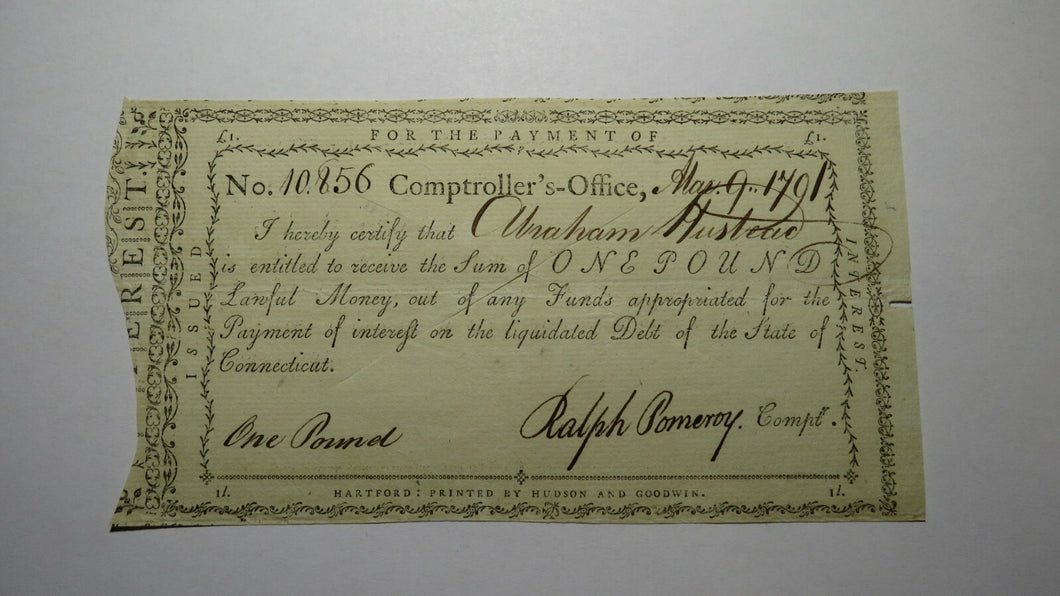 £1. FOR THE PAYMENT OF £1.
No. 10.856 Comptroller's-Office, Mar. 9. 1791
I hereby certify that Abraham Hustead
is entitled to receive the Sum of ONE POUND
Lawful Money, out of any Funds appropriated for the
Payment of interest on the liquidated Debt of the State of
Connecticut.
One Pound Ralph Pomeroy. Comptr.
1l. HARTFORD: PRINTED BY HUDSON AND GOODWIN. 1l.
EREST.
ISSUED
INTEREST.